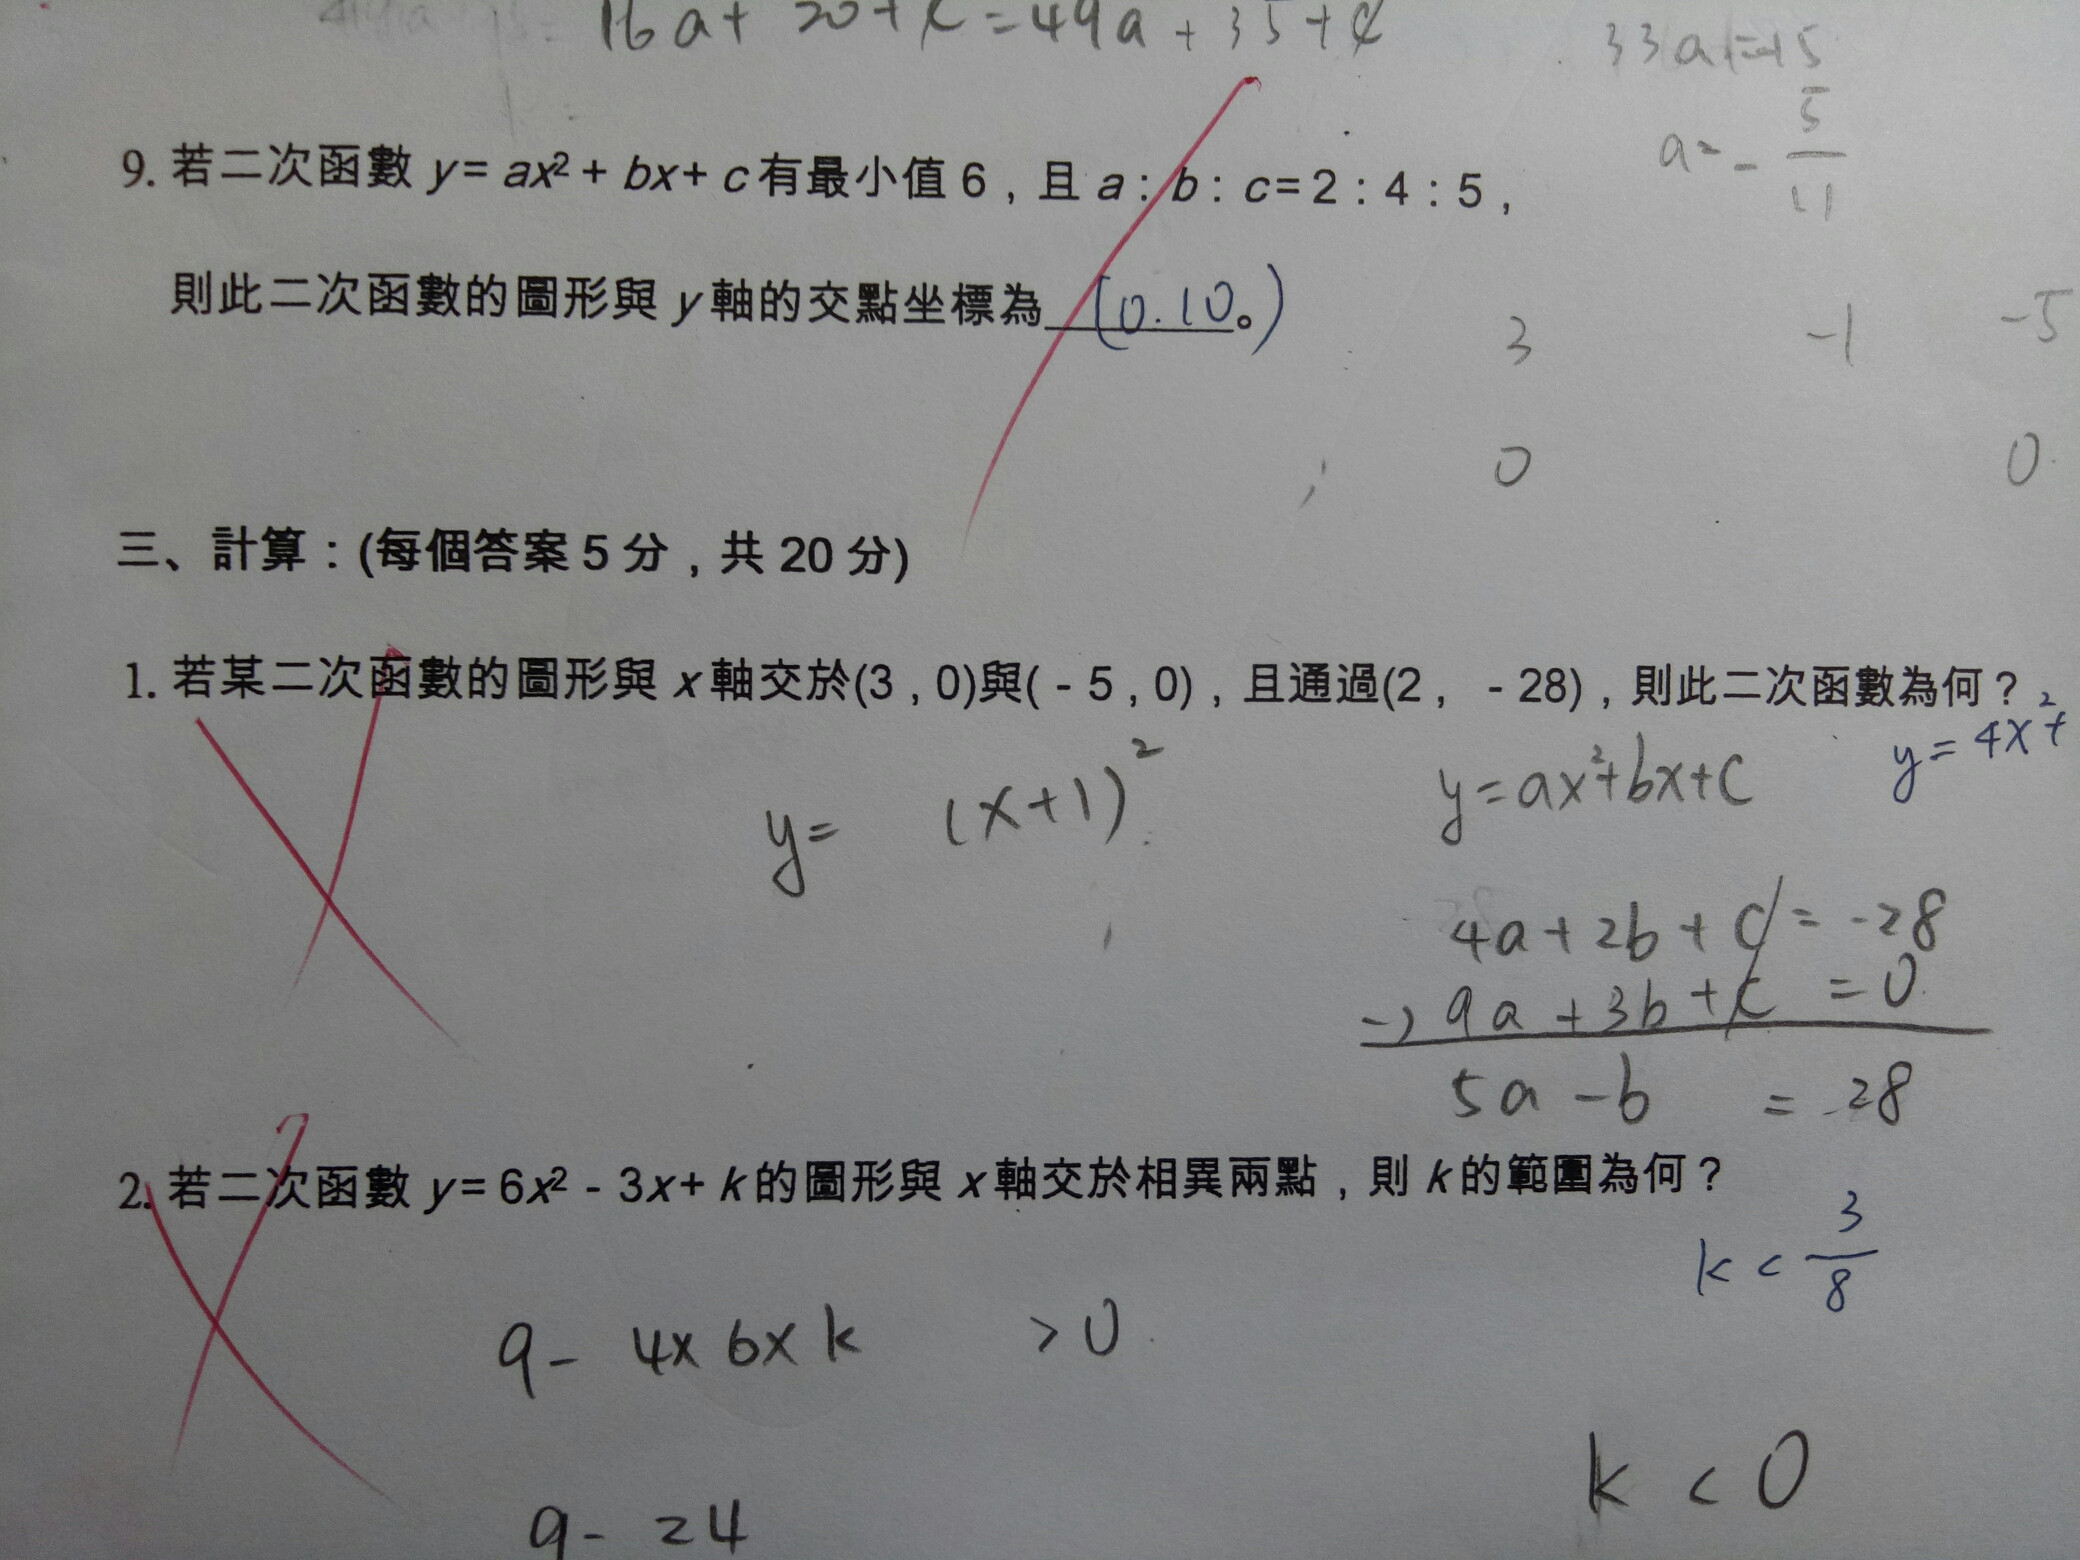 16a+20+c=49a+35+c
33a=-15
a=-5/11
9. 若二次函數 y=ax²+bx+c有最小值6，且a：b：c=2：4：5，
則此二次函數的圖形與y軸的交點坐標為(0.10。)
3 -1 -5
0 0
三、計算：(每個答案5分，共20分)
1. 若某二次函數的圖形與x軸交於(3,0)與(-5,0)，且通過(2, -28)，則此二次函數為何？
y= (x+1)²
y=ax²+bx+c
y=4x²+
4a+2b+c=-28
-) 9a+3b+c=0
5a-b = 28
2. 若二次函數 y=6x²-3x+k的圖形與x軸交於相異兩點，則k的範圍為何？
k<3/8
9-4×6×k >0
k<0
9-24